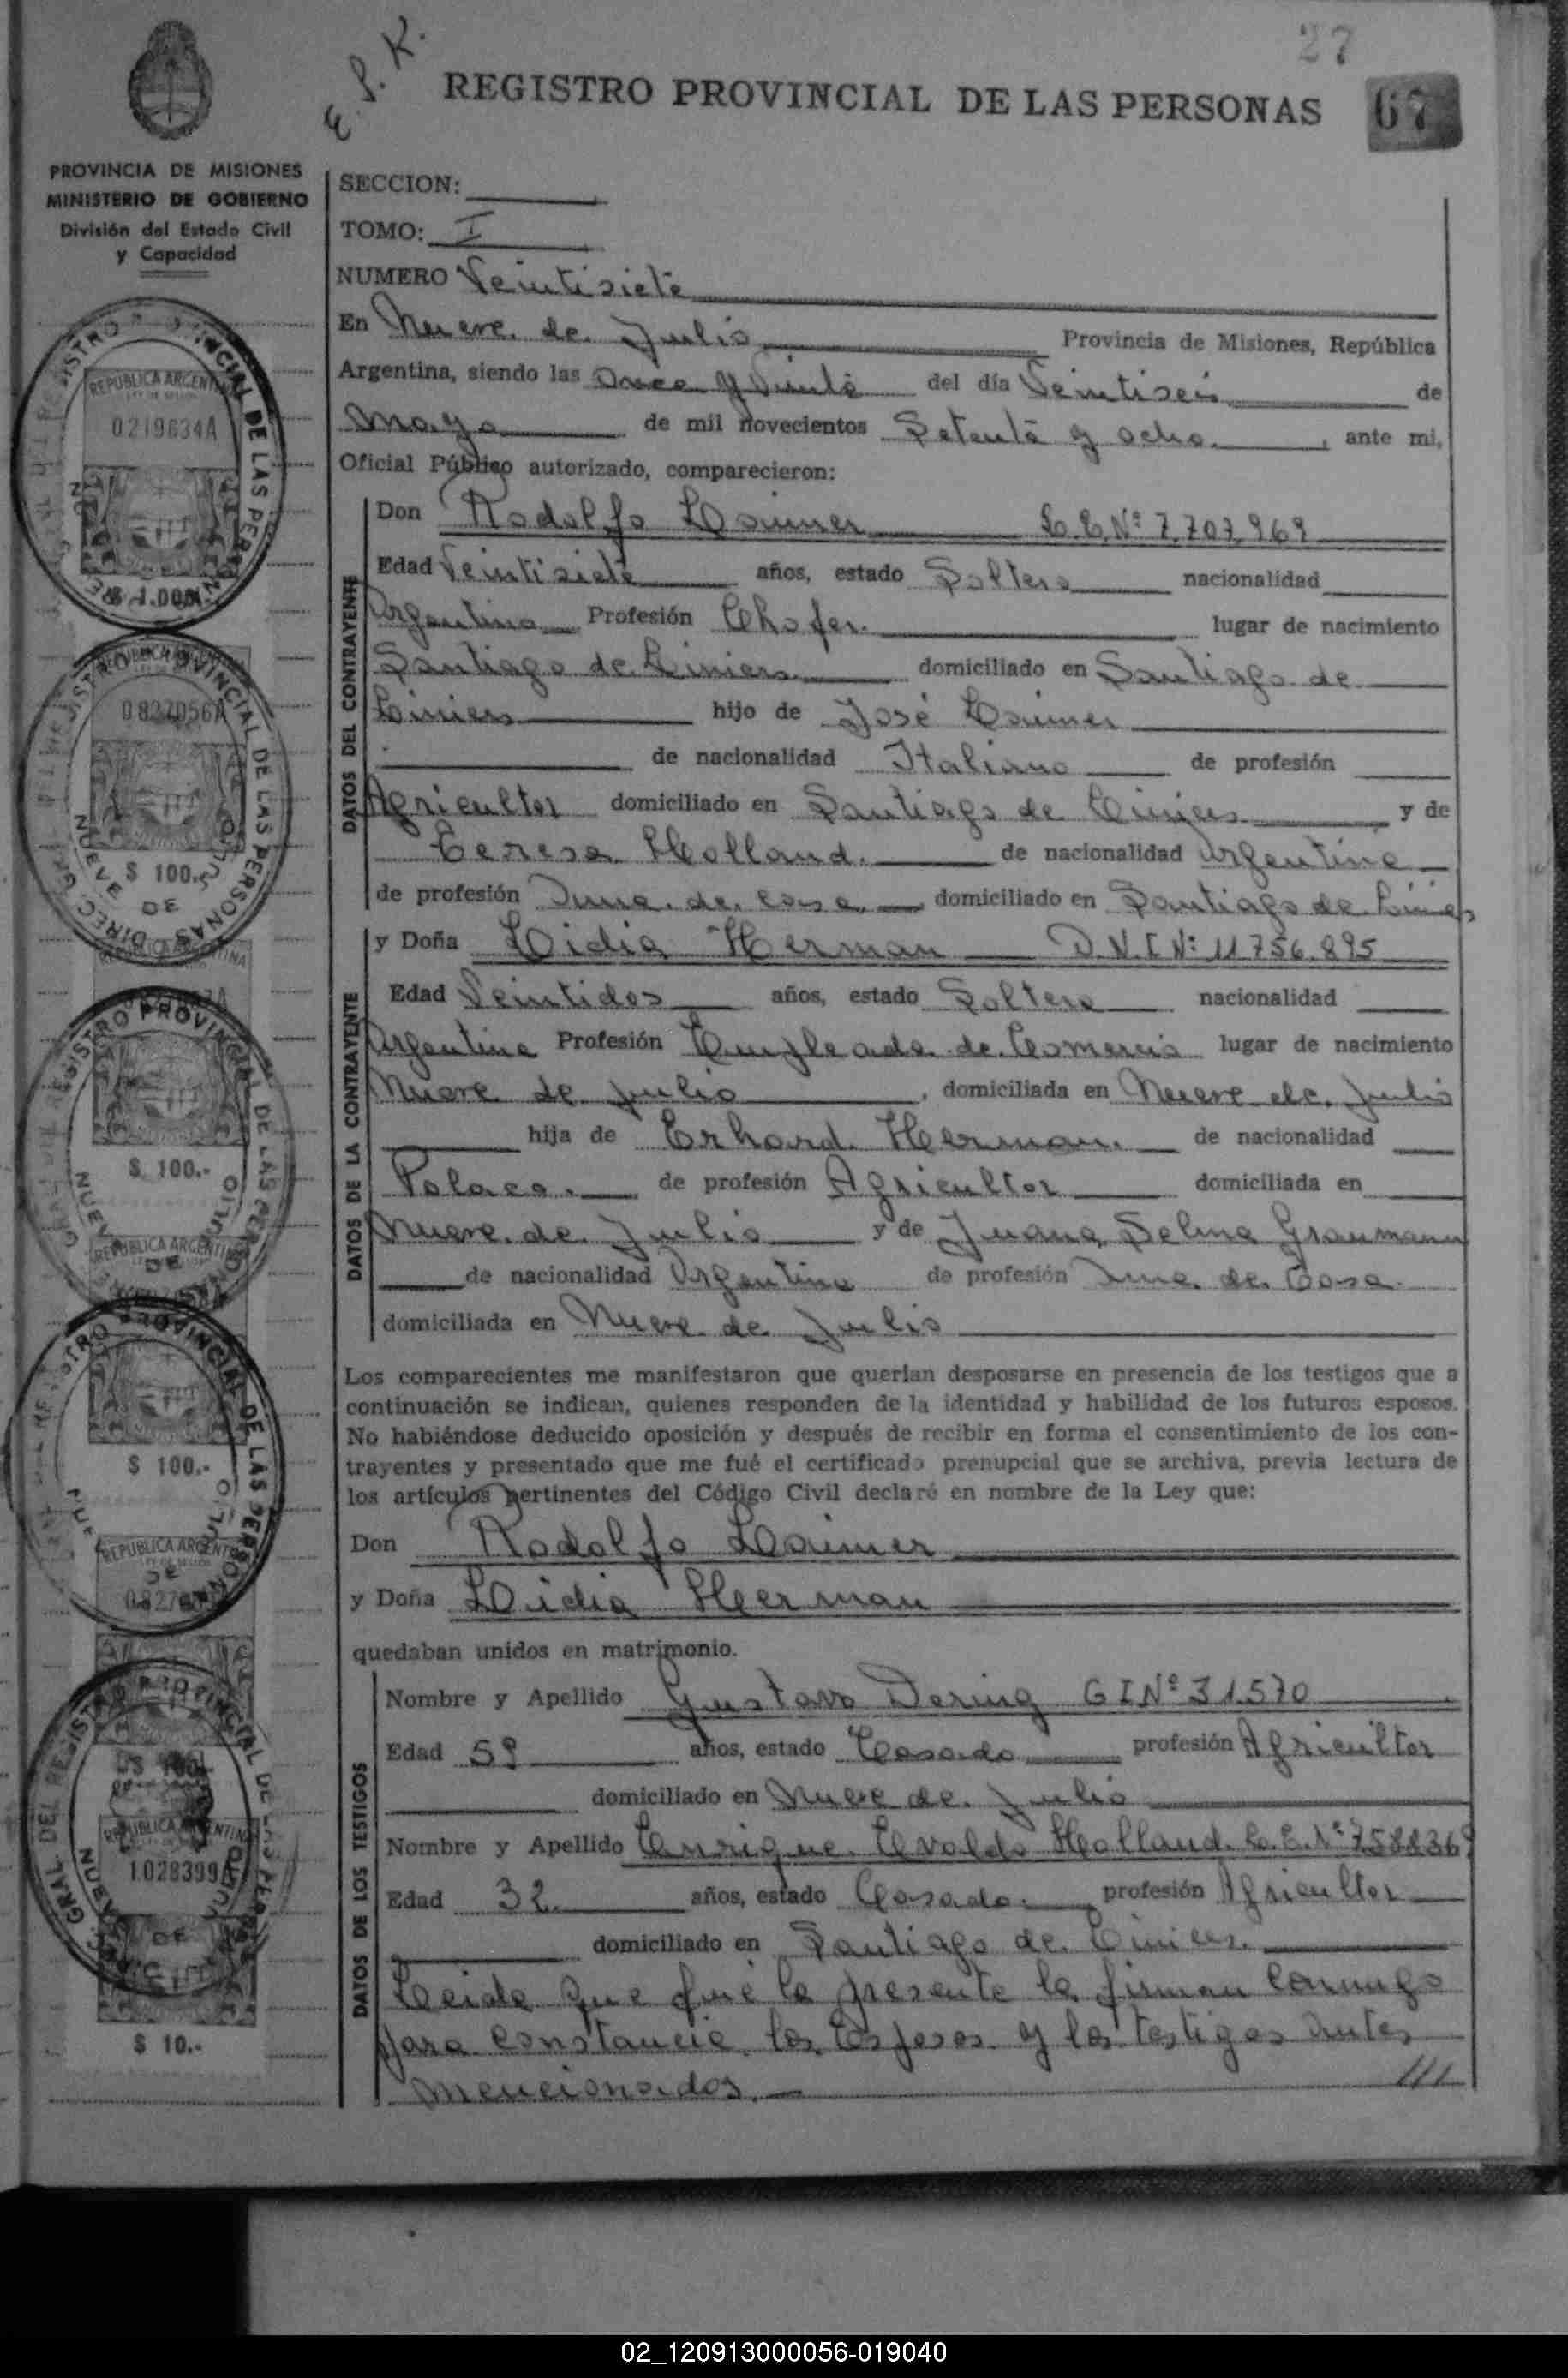 27
E. P. K.
REGISTRO PROVINCIAL DE LAS PERSONAS
67
PROVINCIA DE MISIONES
MINISTERIO DE GOBIERNO
División del Estado Civil
y Capacidad
SECCION:
TOMO: I
NUMERO Veintisiete
En Nueve de Julio Provincia de Misiones, República
Argentina, siendo las Once y Veinte del día Veintiseis de
Mayo de mil novecientos Setenta y ocho, ante mi,
Oficial Público autorizado, comparecieron:
DATOS DEL CONTRAYENTE
Don Rodolfo Laimer L.E.Nº 7.707.969
Edad Veintisiete años, estado Soltero nacionalidad
Argentino Profesión Chofer. lugar de nacimiento
Santiago de Liniers domiciliado en Santiago de
Liniers hijo de José Laimer
de nacionalidad Italiano de profesión
Agricultor domiciliado en Santiago de Liniers y de
Teresa Holland. de nacionalidad Argentina
de profesión Ama. de. Casa domiciliado en Santiago de Liniers
DATOS DE LA CONTRAYENTE
y Doña Lidia Herman D.N.I Nº 11.756.895
Edad Veintidos años, estado Soltera nacionalidad
Argentina Profesión Empleada de Comercio lugar de nacimiento
Nueve de Julio, domiciliada en Nueve de Julio
hija de Erhard Herman. de nacionalidad
Polaco. de profesión Agricultor domiciliada en
Nueve de Julio y de Juana Selma Graumann
de nacionalidad Argentina de profesión Ama de Casa.
domiciliada en Nueve de Julio
Los comparecientes me manifestaron que querían desposarse en presencia de los testigos que a
continuación se indican, quienes responden de la identidad y habilidad de los futuros esposos.
No habiéndose deducido oposición y después de recibir en forma el consentimiento de los con-
trayentes y presentado que me fué el certificado prenupcial que se archiva, previa lectura de
los artículos pertinentes del Código Civil declaré en nombre de la Ley que:
Don Rodolfo Laimer
y Doña Lidia Herman
quedaban unidos en matrimonio.
DATOS DE LOS TESTIGOS
Nombre y Apellido Gustavo Dering C I Nº 31.570
Edad 59 años, estado Casado profesión Agricultor
domiciliado en Nueve de Julio
Nombre y Apellido Enrique Evaldo Holland. L.E.Nº 7588369
Edad 32 años, estado Casado. profesión Agricultor
domiciliado en Santiago de Liniers.
Leida que fué la presente la firman conmigo
para constancia los Esposos y los testigos antes
mencionados.
///
REPUBLICA ARGENTINA
0219634A
$ 1.000.-
0827056A
$ 100.-
NUEVE DE JULIO
$ 100.-
REPUBLICA ARGENTINA
$ 100.-
REPUBLICA ARGENTINA
REPUBLICA ARGENTINA
1028399A
$ 10.-
02_120913000056-019040